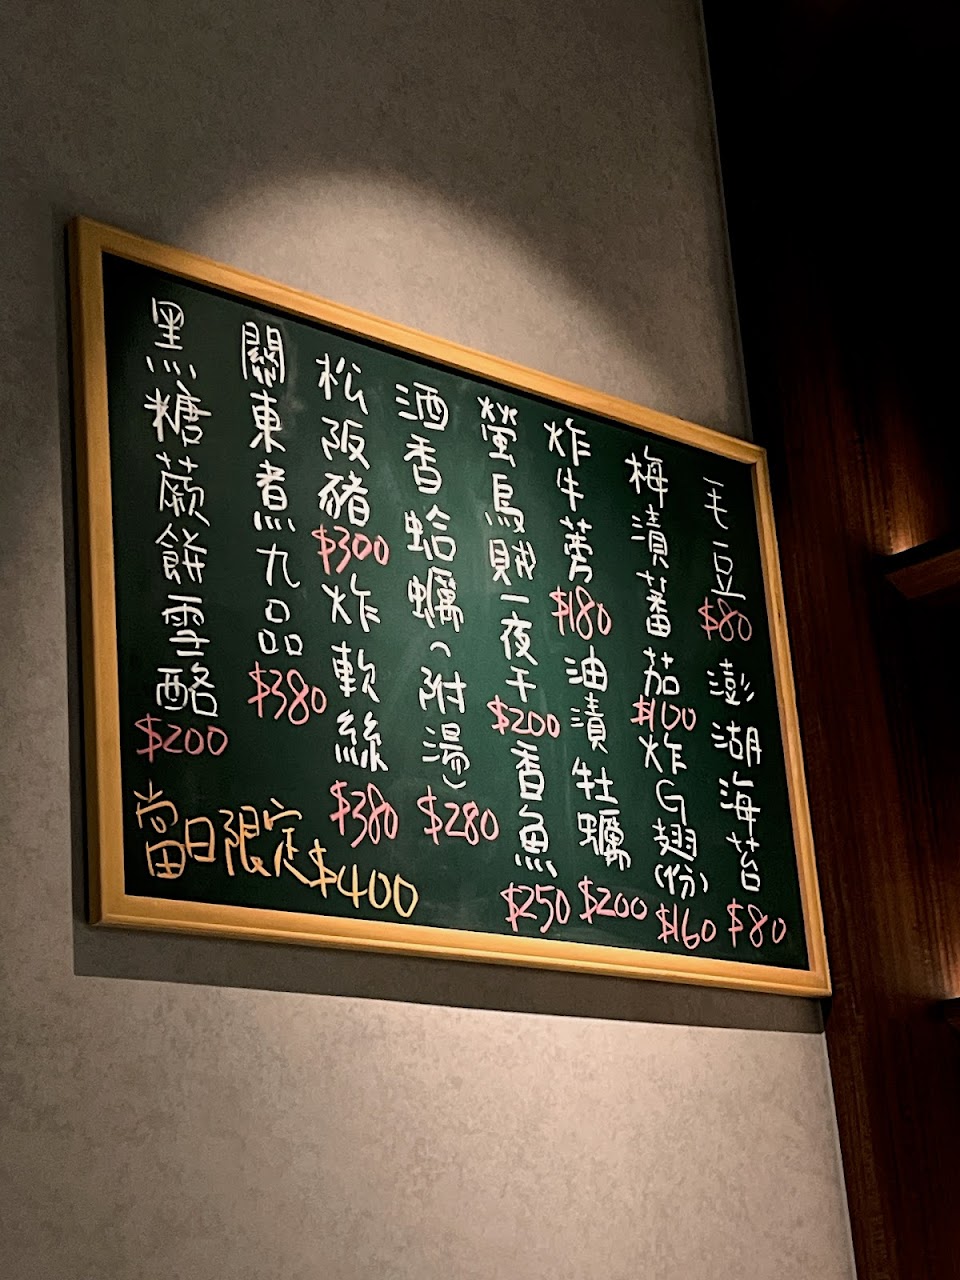 毛豆$80 澎湖海苔$80
梅漬蕃茄$100 炸G翅(份)$160
炸牛蒡$180 油漬牡蠣$200
螢烏賊一夜干$200 香魚$250
酒香蛤蠣(附湯)$280
松阪豬$300 炸軟絲$380
關東煮九品$380
黑糖蕨餅雪酪$200
當日限定$400